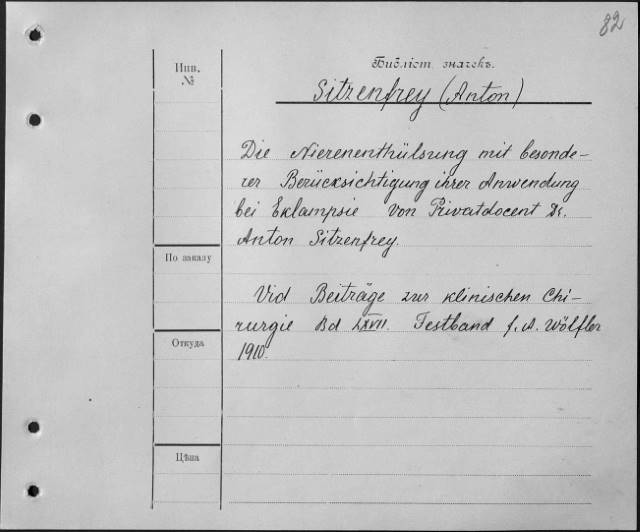 82
Инв.
№
Библіот. значекъ.
Sitzenfrey (Anton)
Die Nierenenthülsung mit besonde-
rer Berücksichtigung ihrer Anwendung
bei Eklampsie von Privatdocent Dr.
Anton Sitzenfrey.
По заказу
Vid Beiträge zur klinischen Chi-
rurgie Bd LXVII. Festband f. A. Wölfler
1910.
Откуда
Цѣна